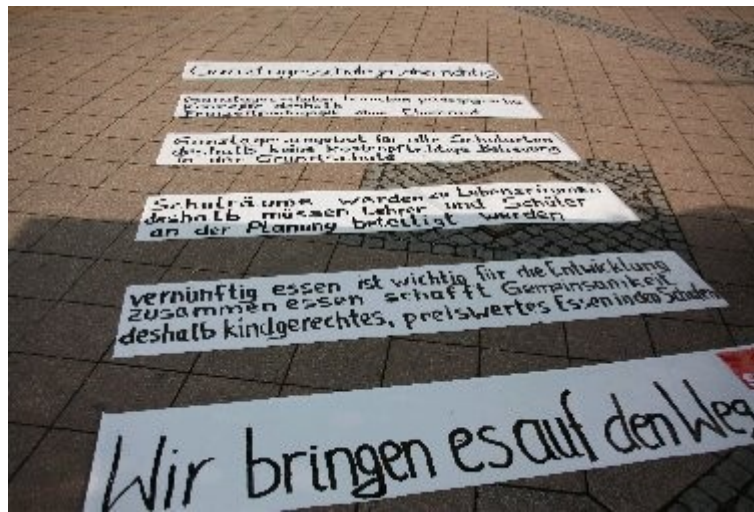 Ganztagsschulen brauchen pädagogische
Konzepte deshalb
ohne
Ganztagsangebot für alle Schularten
deshalb keine kostenpflichtige Betreuung
in der Grundschule
Schulräume werden zu Lebensräumen
deshalb müssen Lehrer und Schüler
an der Planung beteiligt werden
vernünftig essen ist wichtig für die Entwicklung
zusammen essen schafft Gemeinsamkeit
deshalb kindgerechtes, preiswertes Essen in den Schulen
Wir bringen es auf den Weg